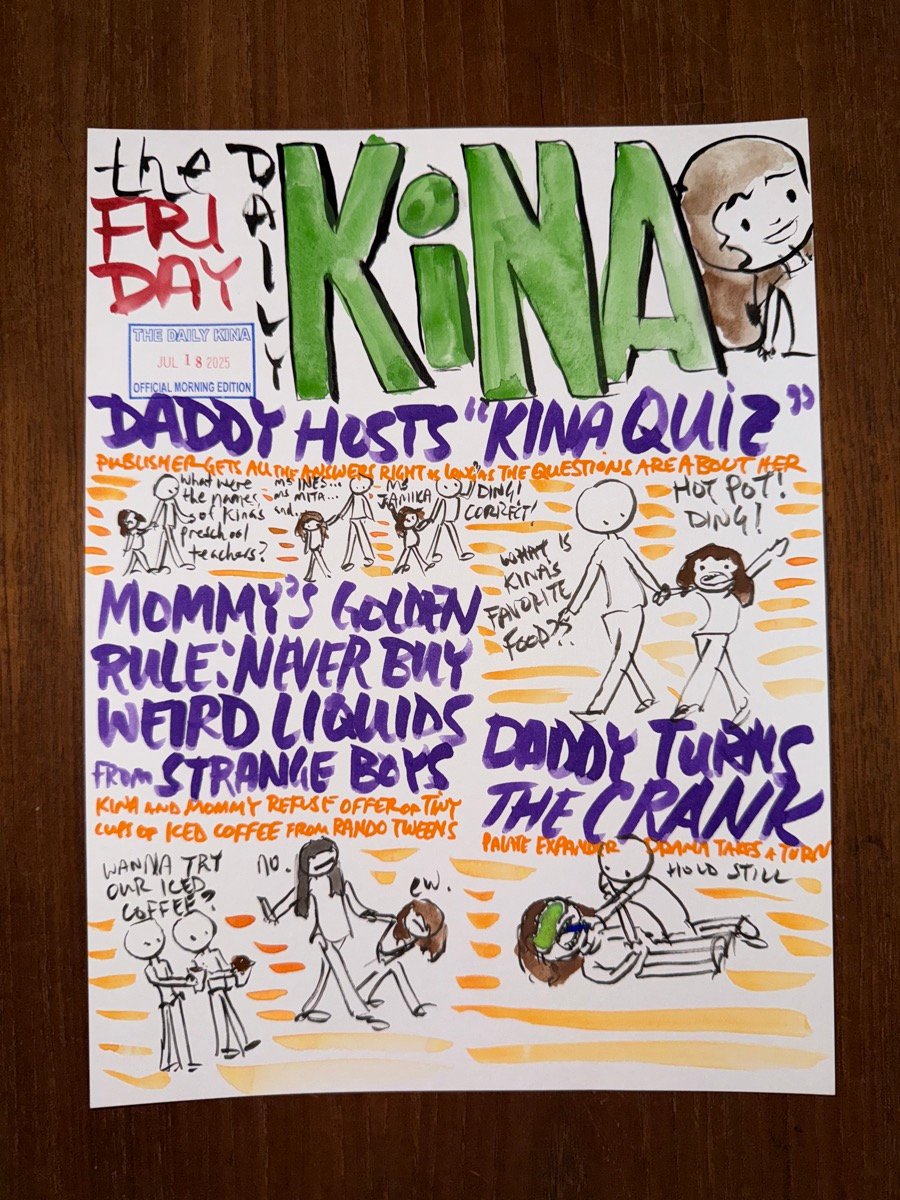 the
FRI
DAY
DAILY
KiNA
THE DAILY KINA
JUL 18 2025
OFFICIAL MORNING EDITION
DADDY HOSTS "KINA QUIZ"
PUBLISHER GETS ALL THE ANSWERS RIGHT as LONG AS THE QUESTIONS ARE ABOUT HER
what were
the names
of Kina's
preschool
teachers?
ms INES...
ms MITA...
and...
Ms
JAMIKA
DING!
CORRECT!
WHAT IS
KINA'S
FAVORITE
FOOD?
HOT POT!
DING!
MOMMY'S GOLDEN
RULE: NEVER BUY
WEIRD LIQUIDS
FROM STRANGE BOYS
KINA AND MOMMY REFUSE OFFER OF TINY
CUPS OF ICED COFFEE FROM RANDO TWEENS
WANNA TRY
OUR ICED
COFFEE?
NO.
EW.
DADDY TURNS
THE CRANK
PALATE EXPANDER DRAMA TAKES A TURN
HOLD STILL